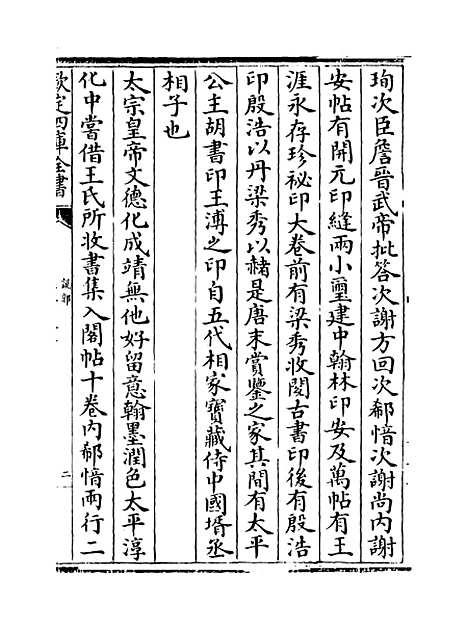 珣次臣詹晉武帝批答次謝方回次郗愔次謝尚内謝
安帖有開元印縫兩小璽建中翰林印安及萬帖有王
涯永存珍祕印大卷前有梁秀收閱古書印後有殷浩
印殷浩以丹梁秀以赭是唐末賞鑒之家其間有太平
公主胡書印王溥之印自五代相家寶藏侍中國壻丞
相子也
太宗皇帝文德化成靖無他好留意翰墨潤色太平淳
化中嘗借王氏所收書集入閣帖十卷内郗愔兩行二
欽定四庫全書
説郛
二